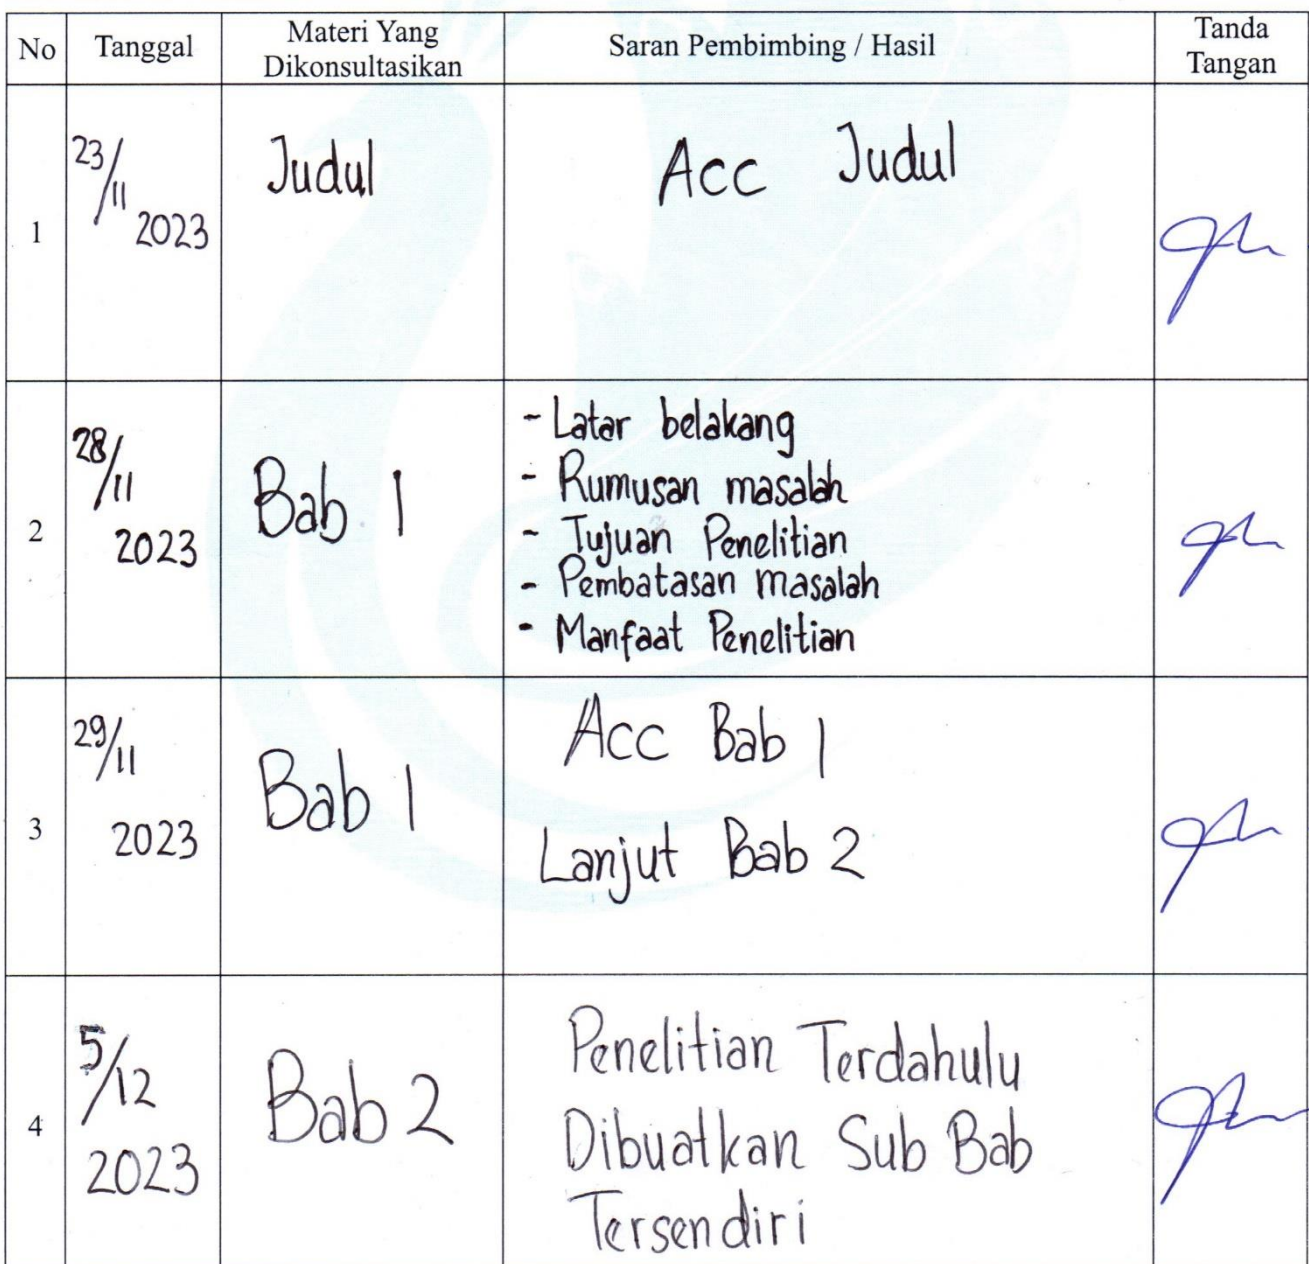 No Tanggal Materi Yang Dikonsultasikan Saran Pembimbing / Hasil Tanda Tangan
1
23/11
2023
Judul
Acc Judul
2
28/11
2023
Bab 1
- Latar belakang
- Rumusan masalah
- Tujuan Penelitian
- Pembatasan masalah
- Manfaat Penelitian
3
29/11
2023
Bab 1
Acc Bab 1
Lanjut Bab 2
4
5/12
2023
Bab 2
Penelitian Terdahulu
Dibuatkan Sub Bab
Tersendiri